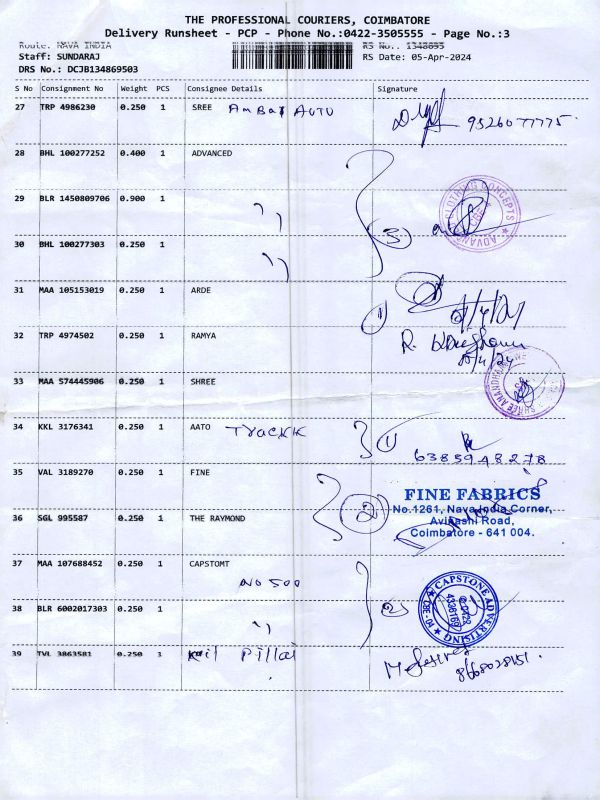 THE PROFESSIONAL COURIERS, COIMBATORE
Delivery Runsheet - PCP - Phone No.:0422-3505555 - Page No.:3
Route: NAVA INDIA RS No.: 1348695
Staff: SUNDARAJ RS Date: 05-Apr-2024
DRS No.: DCJB134869503
S No Consignment No Weight PCS Consignee Details Signature
27 TRP 4986230 0.250 1 SREE AmBal AUTO 9526077775
28 BHL 100277252 0.400 1 ADVANCED
29 BLR 1450809706 0.900 1 ,, (3)
30 BHL 100277303 0.250 1 ,,
ADVANCED CLOTHING CONCEPTS
31 MAA 105153019 0.250 1 ARDE (1)
32 TRP 4974502 0.250 1 RAMYA R.
33 MAA 574445906 0.250 1 SHREE
34 KKL 3176341 0.250 1 AATO Trackk (1)
6385948278
35 VAL 3189270 0.250 1 FINE
FINE FABRICS
No.1261, Nava India Corner,
36 SGL 995587 0.250 1 THE RAYMOND (2)
Avinashi Road,
Coimbatore - 641 004.
37 MAA 107688452 0.250 1 CAPSTOMT
NO 500
CAPSTONE ADVERTISING
38 BLR 6002017303 0.250 1 ,, (2)
39 TVL 3863581 0.250 1 Kail Pillai